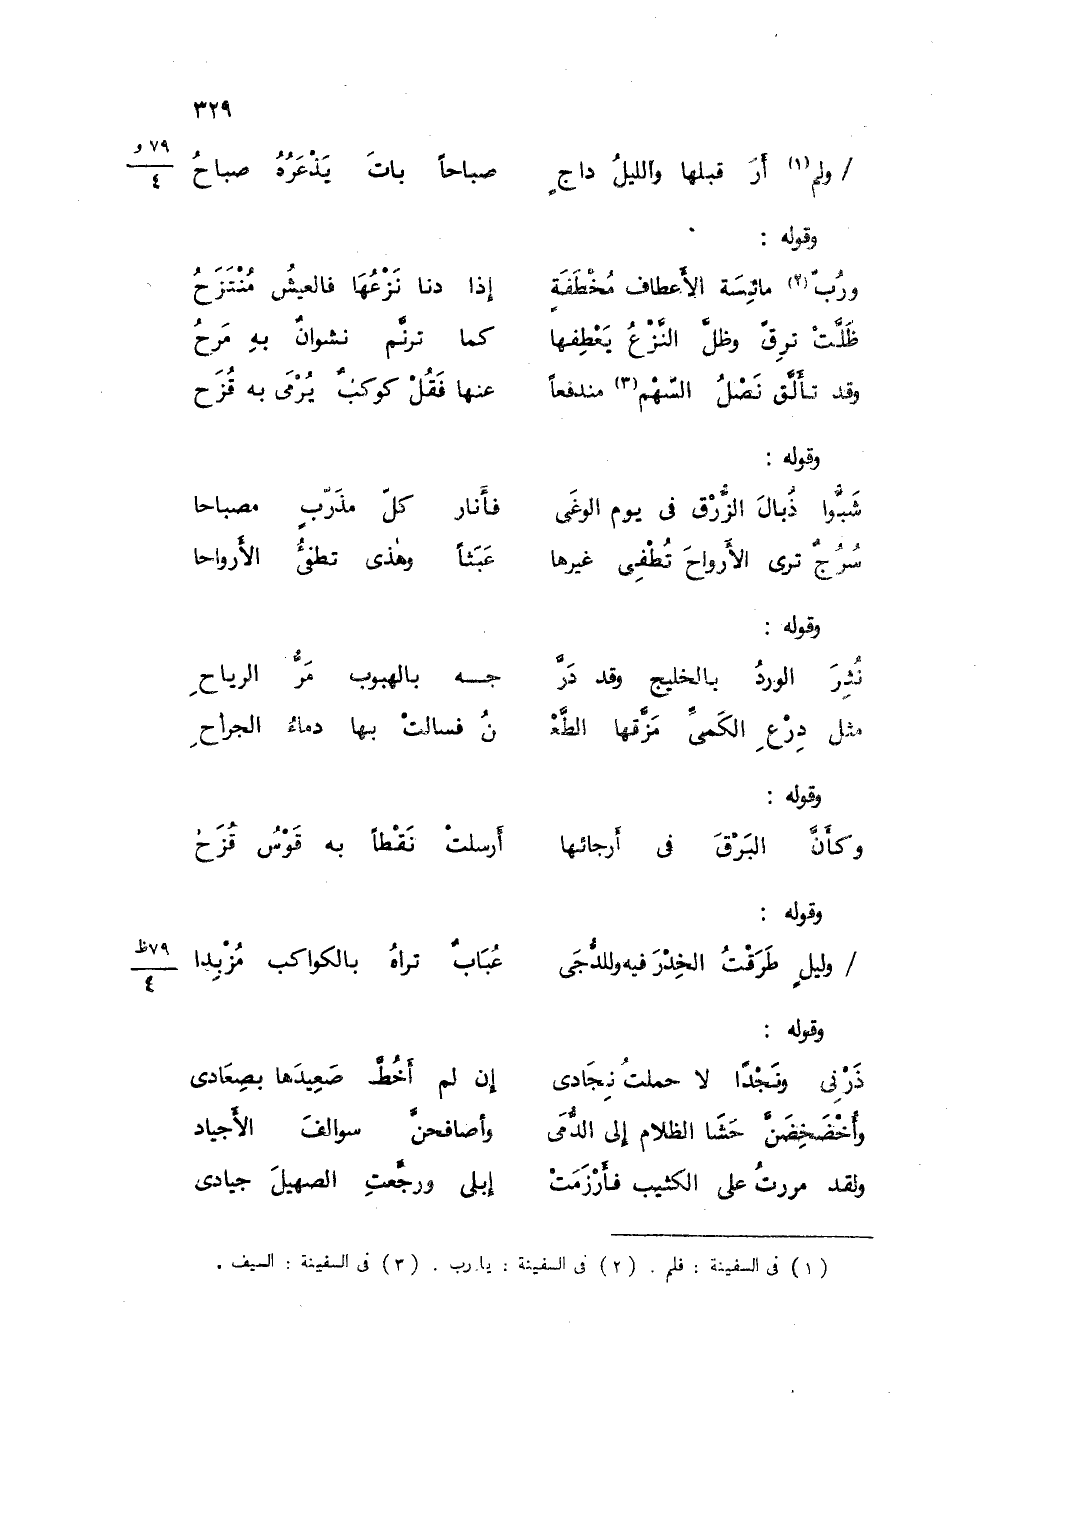 ٣٢٩
/ ولم(١) أَرَ قبلها والليلُ داجٍ صباحاً باتَ يَذْعَرُهُ صباحُ
٧٩ و
٤
وقوله :
ورُبَّ(٢) مائِسَة الأَعطاف مُخْطَفَةٍ إذا دنا نَزْعُهَا فالعيشُ مُنْتَزَحُ
ظَلَّتْ ترِقّ وظلَّ النَّزْعُ يَعْطِفها كما ترنَّم نشوانٌ بهِ مَرحُ
وقد تأَلَّق نَصْلُ السّهْم(٣) مندفعاً عنها فَقُلْ كوكبٌ يُرْمَى به قُزَح
وقوله :
شَبُّوا ذُبالَ الزُّرْق فى يوم الوغَى فأَنار كلّ مذَرّبٍ مصباحا
سُرُجٌ ترى الأَرواحَ تُطْفِى غيرها عَبَثاً وهٰذى تطفئُ الأَرواحا
وقوله :
نُثِرَ الوردُ بالخليج وقد دَرَّ جـه بالهبوب مَرُّ الرياحِ
مثل دِرْعِ الكَمىِّ مَزَّقها الطَّعْ نُ فسالتْ بها دماءُ الجراحِ
وقوله :
وكأَنَّ البَرْقَ فى أَرجائها أَرسلتْ نَقْطاً به قَوْسُ قُزَحْ
وقوله :
/ وليلٍ طَرَقْتُ الخِدْرَ فيه وللدُّجَى عُبَابٌ تراهُ بالكواكب مُزْبِدا
٧٩ظ
٤
وقوله :
ذَرْنِى ونَجْدًا لا حملتُ نِجَادى إن لم أَخُطَّ صَعِيدَها بصِعَادى
وأُخَضْخِضَنَّ حَشَا الظلام إلى الدُّمَى وأصافحنَّ سوالفَ الأَجياد
ولقد مررتُ على الكثيب فأَرْزَمَتْ إبلى ورجَّعتِ الصهيلَ جيادى
(١) فى السفينة : فلم . (٢) فى السفينة : يا رب . (٣) فى السفينة : السيف .